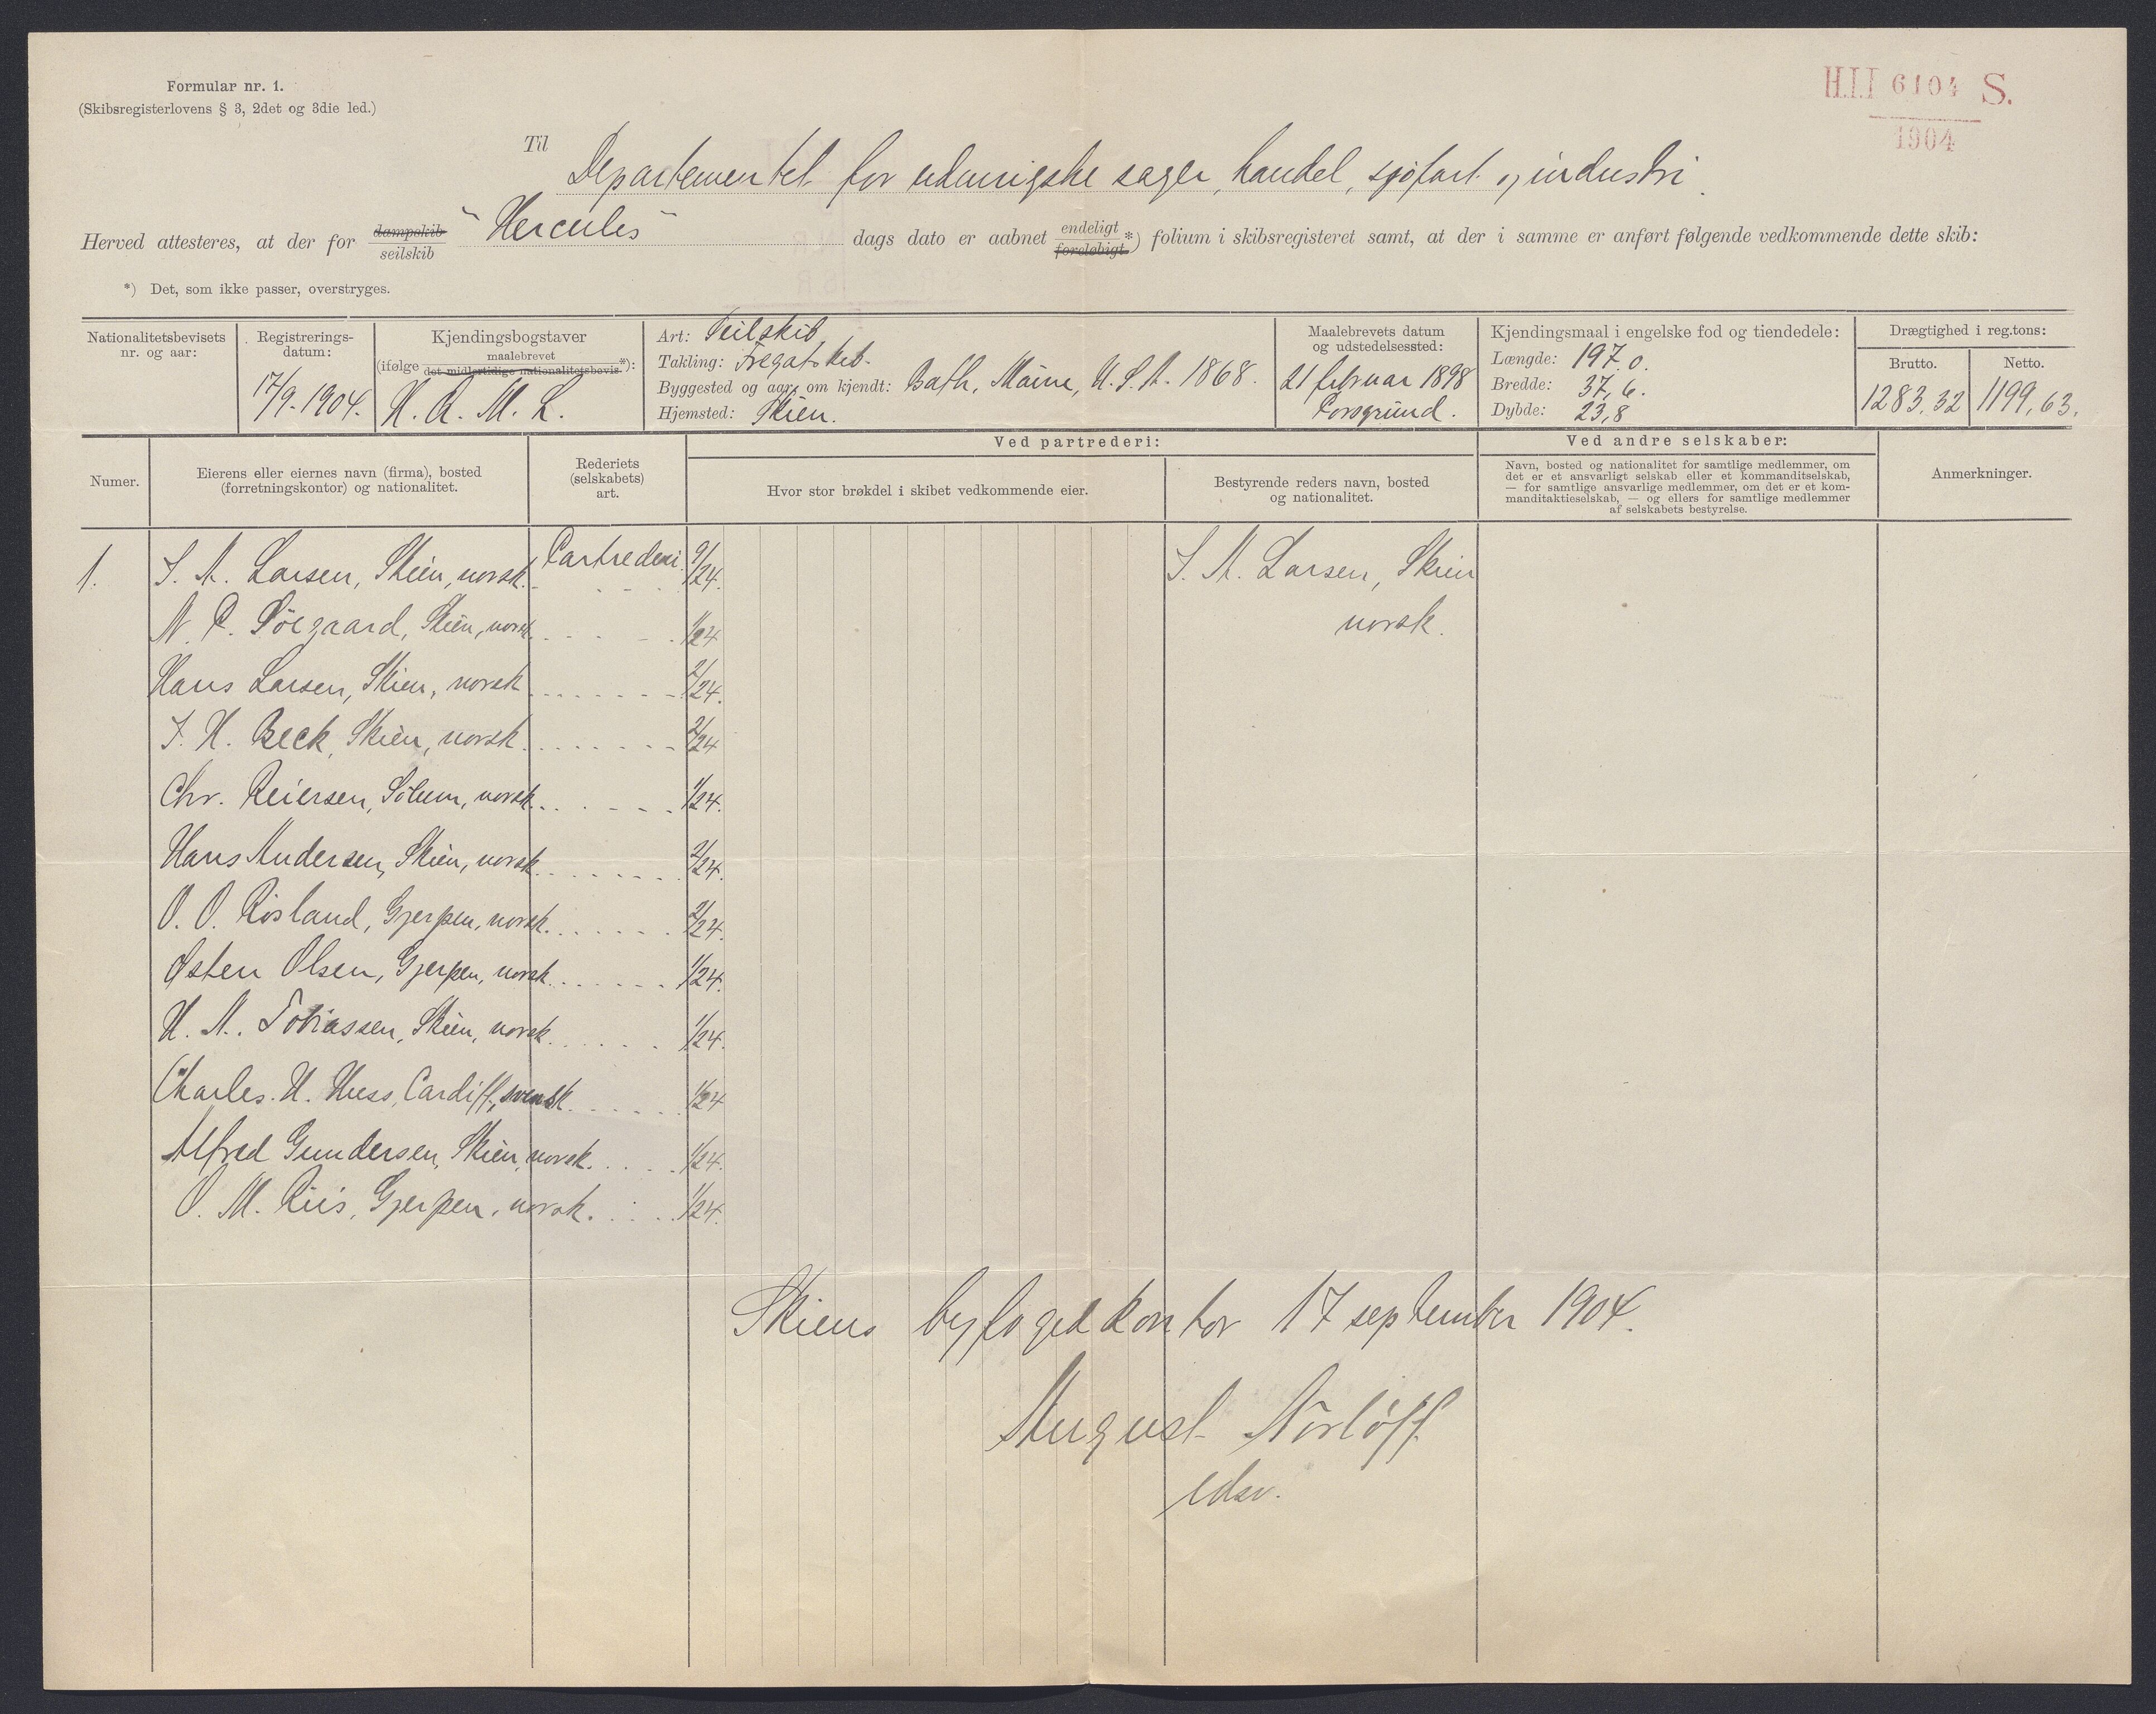 Formular nr. 1.
(Skibsregisterlovens § 3, 2det og 3die led.)
H.I.I 6104 S.
1904
Til Departementet for udenrigske sager, handel, sjøfart og industri.
Herved attesteres, at der for dampskib seilskib "Hercules" dags dato er aabnet endeligt foreløbigt *) folium i skibsregisteret samt, at der i samme er anført følgende vedkommende dette skib:
*) Det, som ikke passer, overstryges.
Nationalitetsbevisets nr. og aar:
Registrerings-datum:
17/9. 1904.
Kjendingsbogstaver
(ifølge maalebrevet det midlertidige nationalitetsbevis *):
H. Q. M. L.
Art: Seilskib
Takling: Fregatskib.
Byggested og aar, om kjendt: Bath, Maine, U.S.A. 1868.
Hjemsted: Skien.
Maalebrevets datum og udstedelsessted:
21 februar 1898
Porsgrund.
Kjendingsmaal i engelske fod og tiendedele:
Længde: 197.0.
Bredde: 37,6.
Dybde: 23,8
Drægtighed i reg.tons:
Brutto. Netto.
1283,32 1199,63.
Numer.
Eierens eller eiernes navn (firma), bosted
(forretningskontor) og nationalitet.
Rederiets
(selskabets)
art.
Ved partrederi:
Hvor stor brøkdel i skibet vedkommende eier.
Bestyrende reders navn, bosted
og nationalitet.
Ved andre selskaber:
Navn, bosted og nationalitet for samtlige medlemmer, om
det er et ansvarligt selskab eller et kommanditselskab,
— for samtlige ansvarlige medlemmer, om det er et kom-
manditaktieselskab, — og ellers for samtlige medlemmer
af selskabets bestyrelse.
Anmerkninger.
1. S. A. Larsen, Skien, norsk. Partrederi. 9/24. S. A. Larsen, Skien
N. P. Söegaard, Skien, norsk. 1/24 norsk.
Hans Larsen, Skien, norsk 2/24.
F. H. Beck, Skien, norsk. 2/24
Chr. Reiersen, Solum, norsk. 1/24.
Hans Andersen, Skien, norsk. 2/24.
O. O. Risland, Gjerpen, norsk. 2/24.
Østen Olsen, Gjerpen, norsk. 1/24.
H. A. Tobiassen, Skien, norsk. 1/24.
Charles H. Huss, Cardiff, svensk. 1/24
Alfred Gundersen, Skien, norsk. 1/24.
O. M. Riis, Gjerpen, norsk. 1/24.
Skiens byfogedkontor 17 september 1904.
August Norløff
edsv.